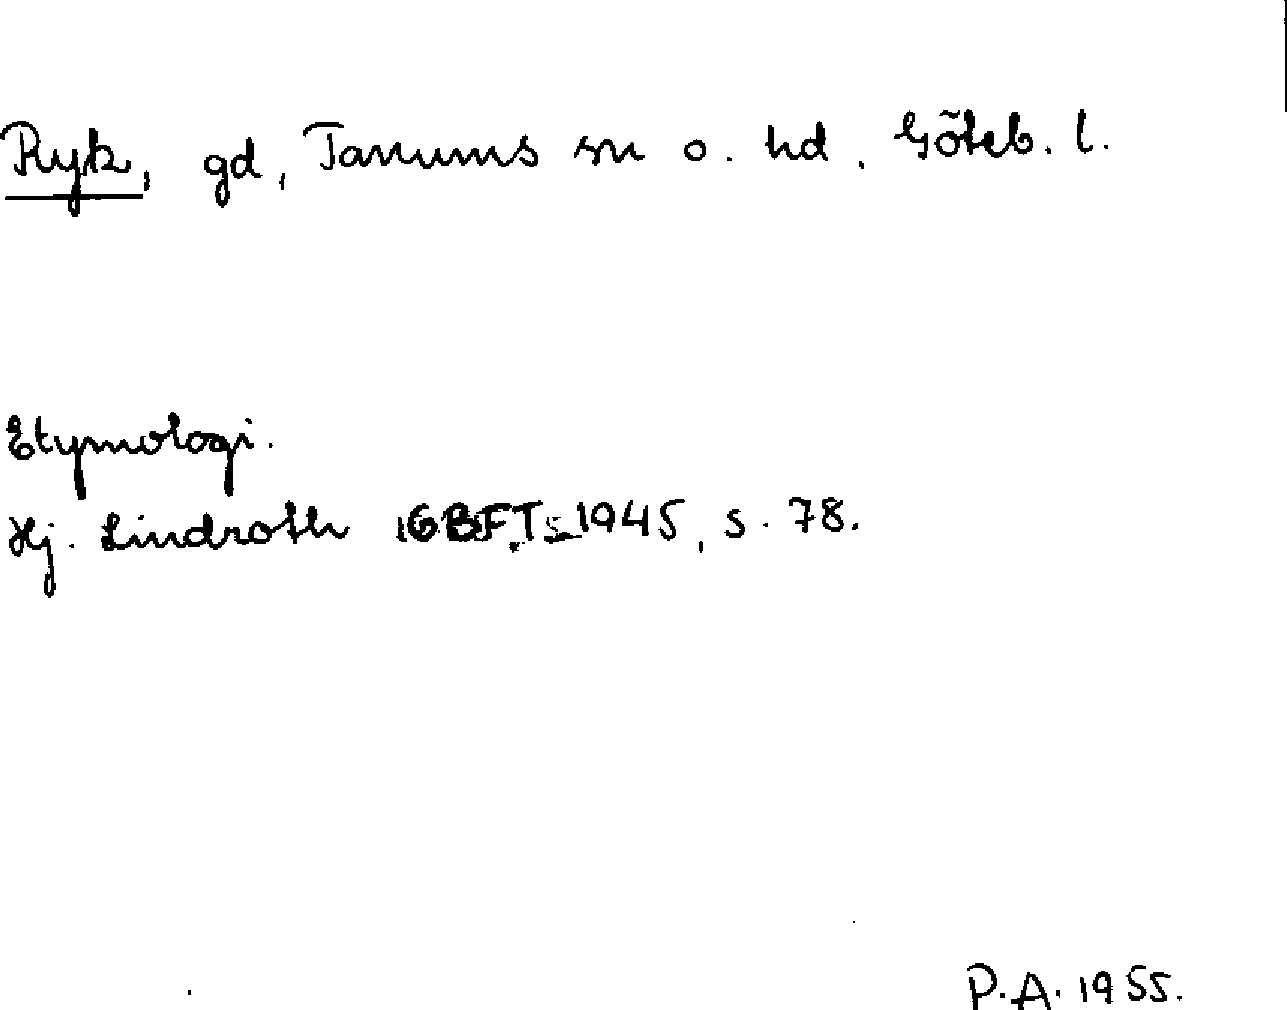 Ryk, gd, Tanums sn o. hd. Göteb. l.
Etymologi.
Hj. Lindroth i GBFT 1945, s. 78.
P.A. 1955.